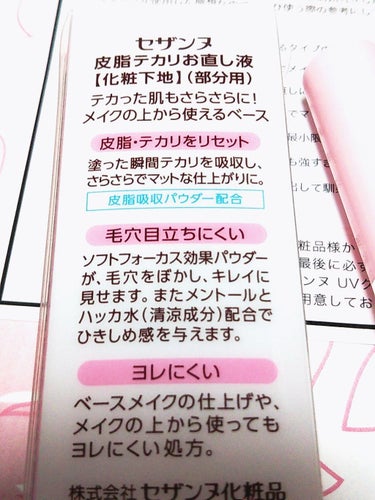 セザンヌ
皮脂テカリお直し液
【化粧下地】（部分用）
テカった肌もさらさらに！
メイクの上から使えるベース
皮脂・テカリをリセット
塗った瞬間テカリを吸収し、
さらさらでマットな仕上がりに。
皮脂吸収パウダー配合
毛穴目立ちにくい
ソフトフォーカス効果パウダー
が、毛穴をぼかし、キレイに
見せます。またメントールと
ハッカ水（清涼成分）配合で
ひきしめ感を与えます。
ヨレにくい
ベースメイクの仕上げや、
メイクの上から使っても
ヨレにくい処方。
株式会社 セザンヌ化粧品
最小限
も強すぎ
出して馴
粧品様か
最後に必ず
ンヌ UVク
用意してお